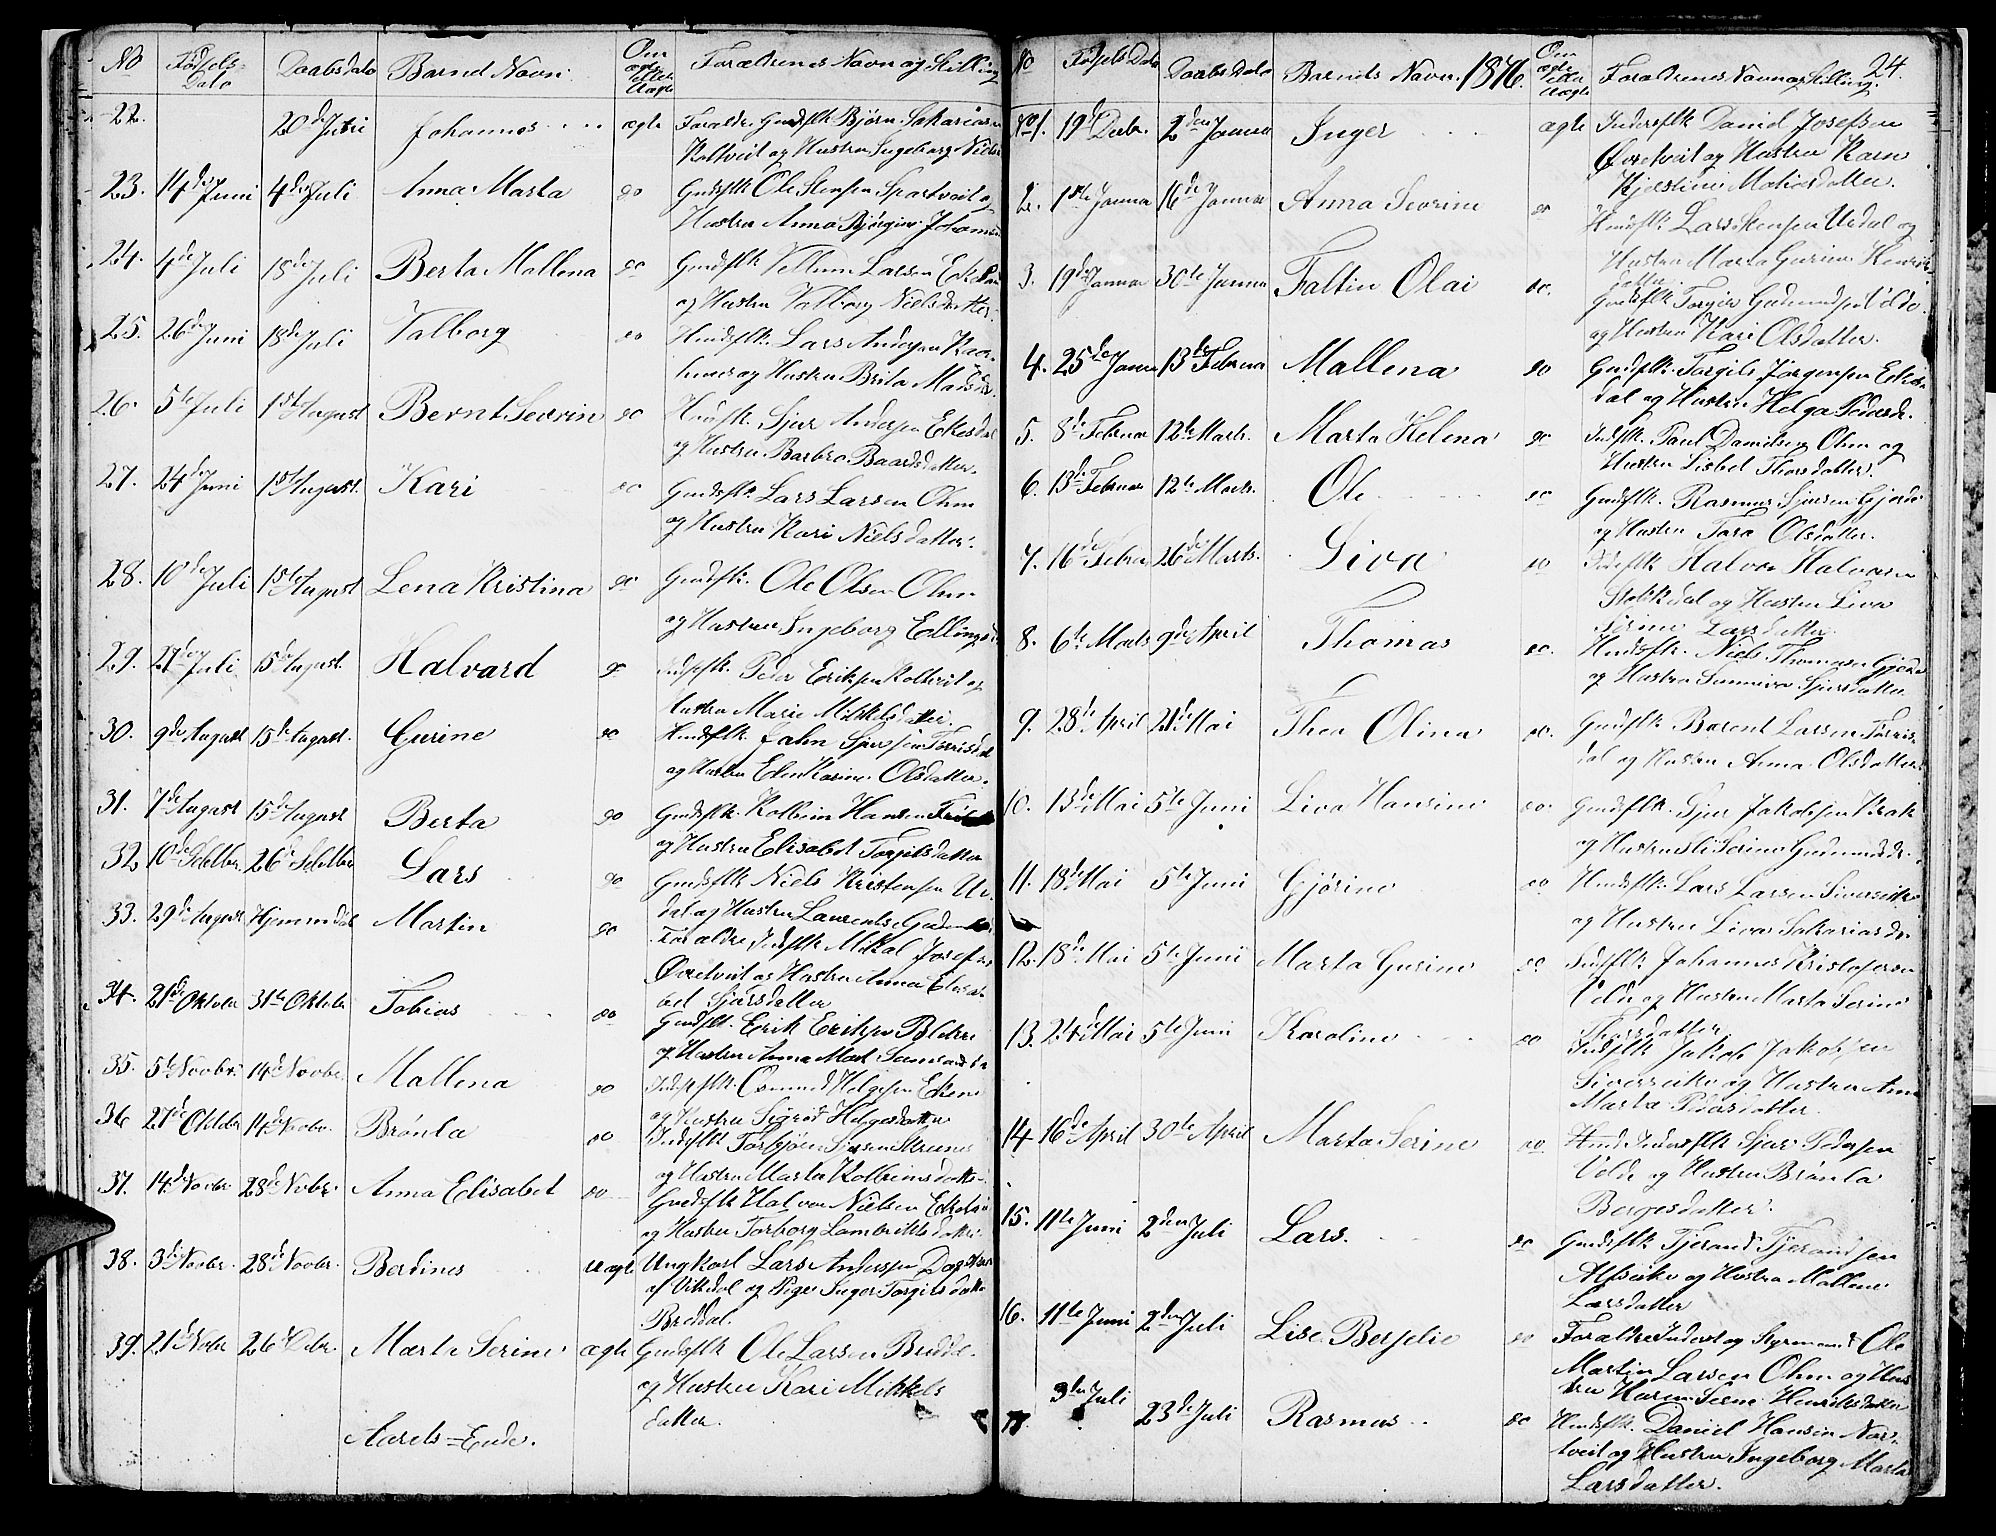 No Fødsels-Dato Daabsdato Barnets Navn Om ægte eller Uægte Forældrenes Navn og Stilling
22. 20de Juni Johannes ægte Forældre Gmdsflk Bjørn Sakariasen
Koltveit og Hustru Ingeborg Niels
23. 14de Juni 4de Juli Anna Marta do Gmdsflk Ole Stensen Spartveit og
Hustru Anna Bjørgine Johannes
24. 4de Juli 18de Juli Berta Mallena do Gmdsflk Villum Larsen Ekeland
og Hustru Valborg Nielsdatter.
25. 26de Juni 18de Juli Valborg do Hmdsflk. Lars Andersen
og Hustru Brita
26. 5te Juli 1ste August Bernt Sevrin do Hmdsflk. Sjur Andersen Ekesdal
og Hustru Barbro Baardsdatter.
27. 24de Juni 1ste August. Kari do Gmdsflk Lars Larsen Ohm
og Hustru Kari Nielsdatter.
28. 10de Juli 15te August Lena Kristina do Gmdsflk. Ole Olsen Ohm
og Hustru Ingeborg Ellings
29. 27de Juli 15de August. Halvard do Indsflk. Peder Eriksen Koltveit og
Hustru Marie Mikkelsdatter.
30. 9de August 15de August. Gurine do Hmdsflk. John Sjursen Torrisdal
og Hustru Elen Karine Olsdatter.
31. 7de August 15de August Berta do Gmdsflk. Kolbein Hansen
og Hustru Elisabet Torgilsdatter
32. 10de Septbr. 26de Septbr Lars do Gmdsflk Niels Kristensen Ur-
dal og Hustru Laurentse
33. 29de August Hjemmedøb Martin do Forældre Indsflk Mikal Josefsen
Øvretveit og Hustru Anna Elisa-
bet Sjursdatter
34. 21de Oktober 31te Oktober Tobias do Gmdsflk. Erik Eriksen
og Hustru Anna
35. 5te Novbr. 14de Novbr. Mallena do Indsflk. Osmund Helgesen Ekene
og Hustru Sigrid Helgesdatter
36 27de Oktobr 14de Novbr. Brønla do Indsflk Torbjørn Sjursen
og Hustru Marta Kolbeinsdatter.
37. 14de Novbr 28de Novbr. Anna Elisabet do Gmdsflk Halvor Nielsen
og Hustru Torborg Lambriktsdatter
38. 3de Novbr. 28de Novbr. Berdines uægte Ungkarl Lars Andersen
af Vikedal og Pige Inger Torgilsdatter
Breddal.
39. 21de Novbr 26de Debr. Marta Serine ægte Gmdsflk Ole Larsen Breddal.
og Hustru Kari Mikkels
datter.
Aarets Ende.
No Fødsels Dato Daabs Dato Barnets Navn 1876. Om ægte eller Uægte Forældrenes Navn og Stilling. 24.
No 1. 19de Decbr. 2den Januar Inger ægte Indersflk Daniel Josefsen
Øvretveit og Hustru Karn
Kjerstine Matiasdatter.
2. 1ste Januar 16de Januar Anna Sevrine do Hmdsflk Lars Stensen Urdal og
Hustru Marta Gurine Henrik-
datter.
3. 19de Januar 30te Januar Faltin Olai do. Gmdsflk Torger Gudmundsen Velde.
og Hustru Kari Olsdatter.
4. 25de Januar 13de Februar Mallena do Gmdsflk. Torgils Jørgensen Ekes-
dal og Hustru Helga Pedersd.
5. 8de Februar 12te Marts. Marta Helena do Indsflk. Paul Danielsen Ohm og
Hustru Lisbet Thorsdatter.
6. 13de Februar 12te Marts. Ole do Gmdsflk. Rasmus Sjursen Gjerde
og Hustru Tara Olsdatter.
7. 16de Februar 26de Marts. Liva do Indsflk Halvor Halvorsen
Stokkdal og Hustru Liva
Serine Larsdatter.
8. 6te Marts 9de April Thomas do. Hmdsflk. Niels Thomasen Gjerde
og Hustru Sunniva Sjursdatter.
9. 28de April 21de Mai Thea Olina do. Gmdsflk Barent Larsen Torris-
dal og Hustru Anna Olsdatter.
10. 13de Mai 5te Juni Liva Hansine do Gmdsflk. Sjur Jakobsen Krak
og Hustru Eli Serine Gudmundsdr.
11. 18de Mai 5te Juni Gjørine do Hmdsflk. Lars Larsen
og Hustru Liva Sakariasdr
12. 18de Mai 5te Juni Marta Gurine do Indsflk. Johannes Kristofersen
Velde og Hustru Marta Serine
Thorsdatter
13. 24de Mai 5te Juni Karoline do Indsflk Jakob Jakobsen
og Hustru Anna
Marta Pedersdatter.
14 16de April 30te April Marta Serine do Indersflk Sjur Pedersen
Velde og Hustru Brønla
Borgesdatter.
15. 11te Juni 2den Juli Lars. do Gmdsflk Tjerand Tjerandsen
Alfsvike og Hustru Mallene
Larsdatter
16. 11te Juni 2den Juli Lise Berselie do Forældre Inderst og Styrmand Ole
Martin Larsen Ohm og Hus
tru Henriksdatter
17. 3de Juli 23de Juli Rasmus do Hmdsflk. Daniel Hansen
tveit og Hustru Ingeborg Marta
Larsdatter.